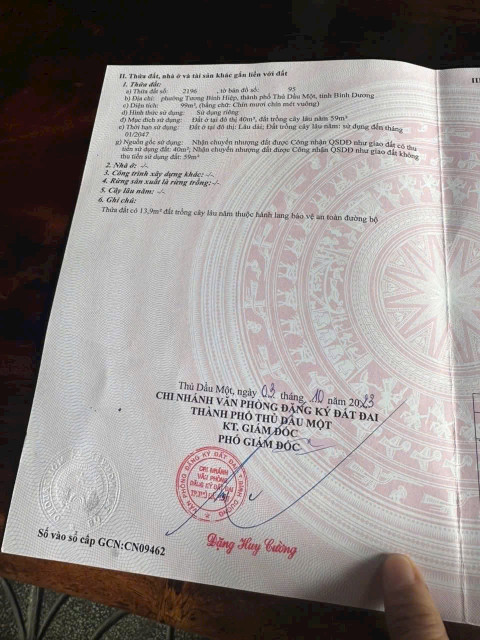 II. Thửa đất, nhà ở và tài sản khác gắn liền với đất
1. Thửa đất:
a) Thửa đất số: 2196 , tờ bản đồ số: 95
b) Địa chỉ: phường Tương Bình Hiệp, thành phố Thủ Dầu Một, tỉnh Bình Dương
c) Diện tích: 99m², (bằng chữ: Chín mươi chín mét vuông)
d) Hình thức sử dụng: Sử dụng riêng
đ) Mục đích sử dụng: Đất ở tại đô thị 40m², đất trồng cây lâu năm 59m²
e) Thời hạn sử dụng: Đất ở tại đô thị: Lâu dài; Đất trồng cây lâu năm: sử dụng đến tháng
01/2047
g) Nguồn gốc sử dụng: Nhận chuyển nhượng đất được Công nhận QSDĐ như giao đất có thu
tiền sử dụng đất: 40m²; Nhận chuyển nhượng đất được Công nhận QSDĐ như giao đất không
thu tiền sử dụng đất: 59m²
2. Nhà ở: -/-
3. Công trình xây dựng khác: -/-
4. Rừng sản xuất là rừng trồng: -/-
5. Cây lâu năm: -/-
6. Ghi chú:
Thửa đất có 13,9m² đất trồng cây lâu năm thuộc hành lang bảo vệ an toàn đường bộ
Thủ Dầu Một, ngày 03 tháng 10 năm 2023
CHI NHÁNH VĂN PHÒNG ĐĂNG KÝ ĐẤT ĐAI
THÀNH PHỐ THỦ DẦU MỘT
KT. GIÁM ĐỐC
PHÓ GIÁM ĐỐC
VĂN PHÒNG ĐĂNG KÝ ĐẤT ĐAI T.BÌNH DƯƠNG
CHI NHÁNH
VĂN PHÒNG
ĐĂNG KÝ ĐẤT ĐAI
Đặng Huy Cường
Số vào sổ cấp GCN:CN09462